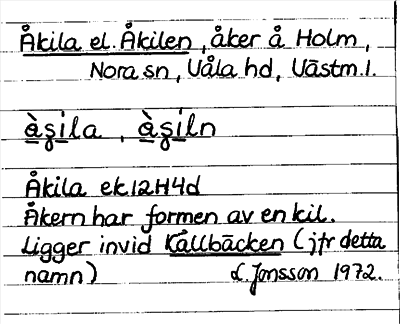 Åkila el. Åkilen, åker å Holm,
Nora sn, Våla hd, Västm.l.
àşila, àşiln
Åkila ek.12H4d
Åkern har formen av en kil.
Ligger invid Kållbäcken (jfr detta
namn) L. Jonsson 1972.